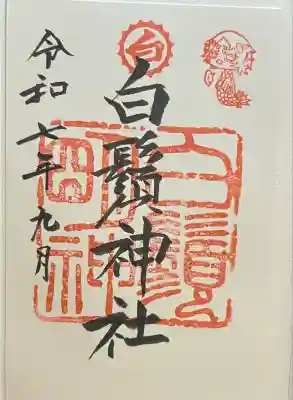 白
白鬚神社
令和七年九月
白鬚神社